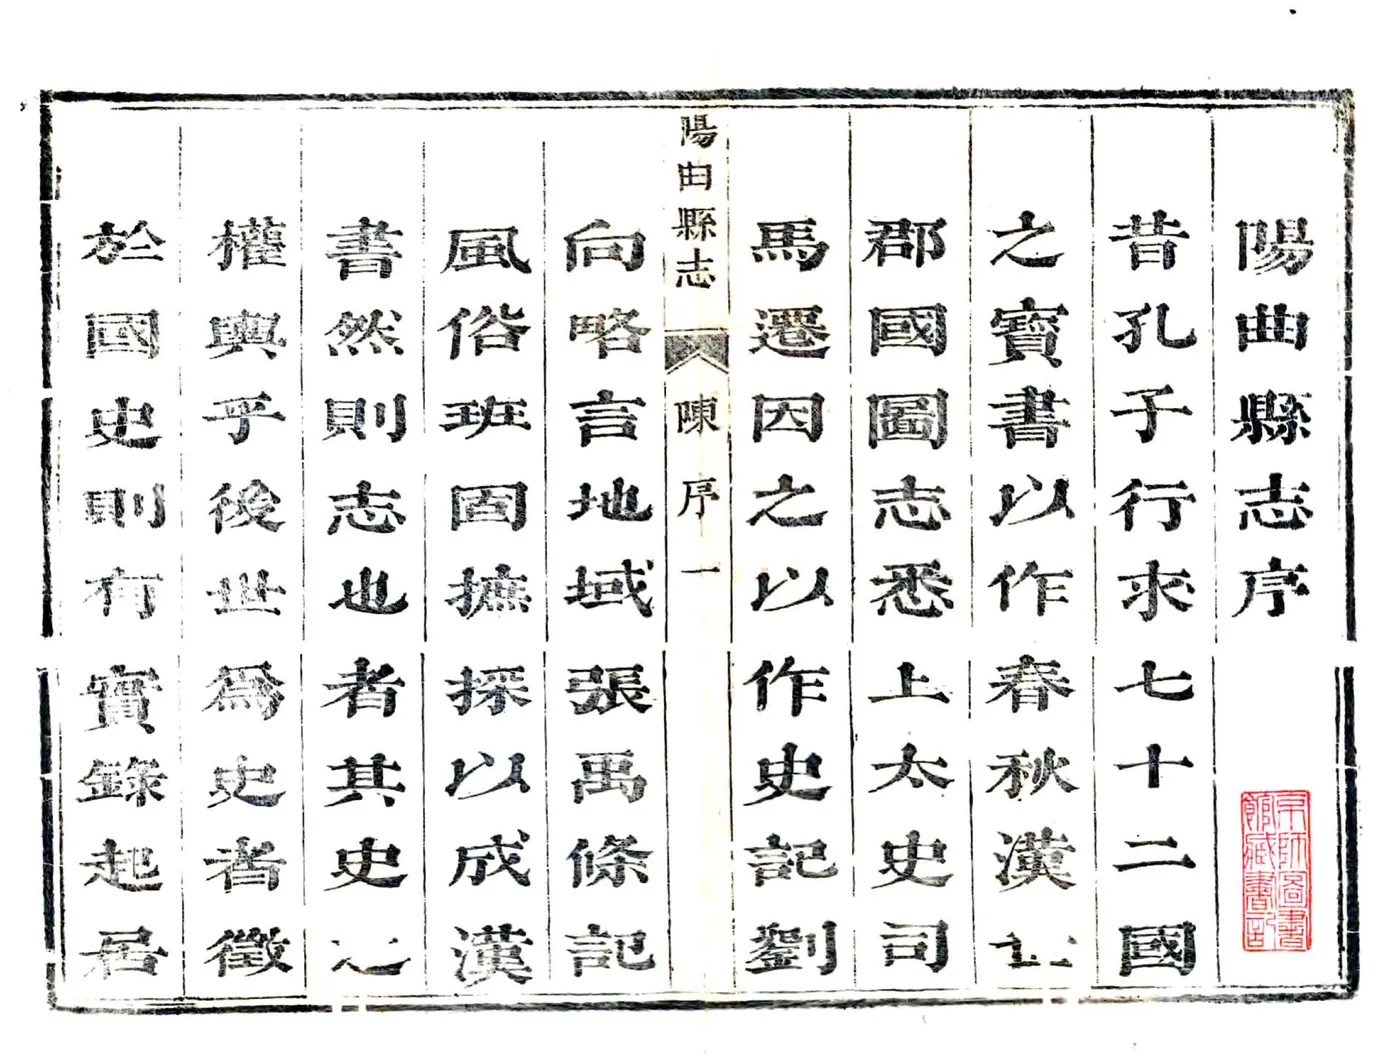 陽曲縣志序
京師圖書
館藏書記
昔孔子行求七十二國
之寶書以作春秋漢
郡國圖志悉上太史司
馬遷因之以作史記劉
陽曲縣志 陳序 一
向略言地域張禹條記
風俗班固摭採以成漢
書然則志也者其史之
權輿乎後世爲史者徵
於國史則有實錄起居